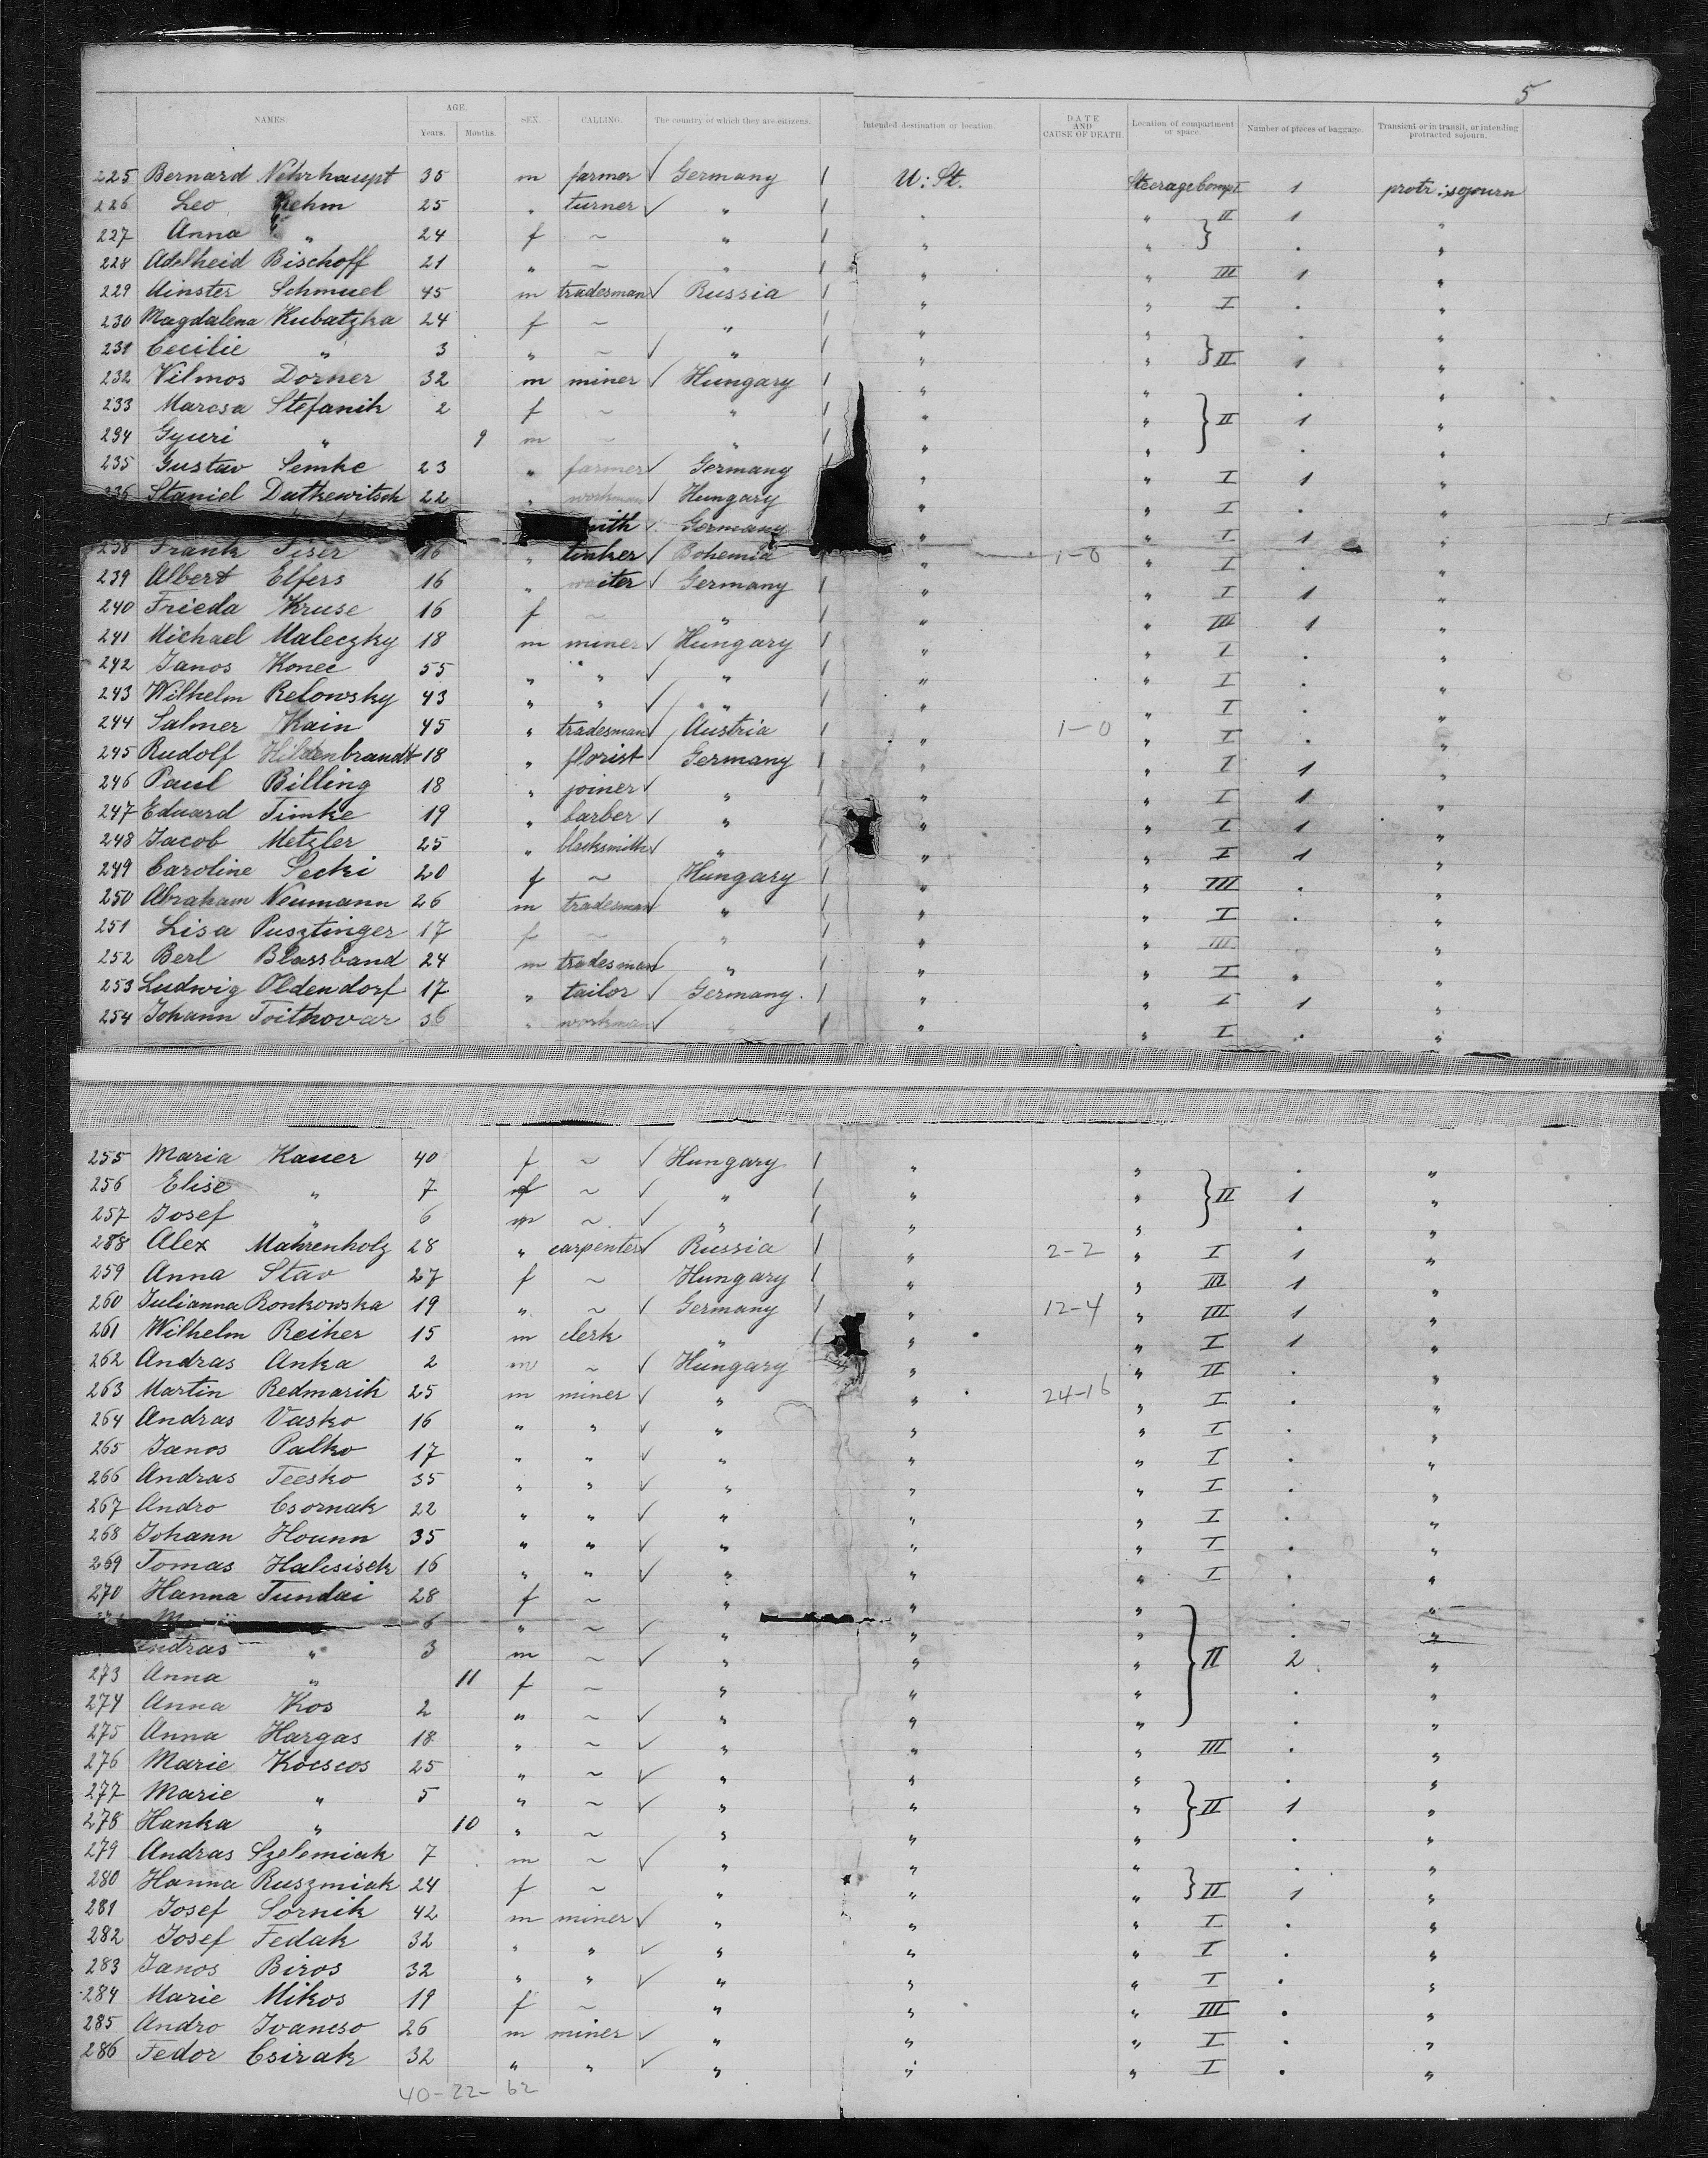 5
NAMES. AGE. Years. Months. SEX. CALLING. The country of which they are citizens. Intended destination or location. DATE AND CAUSE OF DEATH. Location of compartment or space. Number of pieces of baggage. Transient or in transit, or intending protracted sojourn.
225 Bernard Nehrhaupt 35 m farmer √ Germany / U: St. Steerage Compt 1 protr: sojourn
226 Leo Rehm 25 " turner √ " / " " II 1 "
227 Anna " 24 f ~ " / " " } . "
228 Adelheid Bischoff 21 " ~ " / " " III 1 "
229 Ainster Schmuel 45 m tradesman √ Russia / " " I . "
230 Magdalena Kubatzka 24 f ~ " / " " . "
231 Cecilie " 3 " ~ √ " / " " } II 1 "
232 Vilmos Dorner 32 m miner √ Hungary / " " . "
233 Maresa Stefanik 2 f ~ " / " " } II 1 "
234 Gyuri " 9 m ~ " / " " . "
235 Gustav Semke 23 " farmer √ Germany / " " I 1 "
236 Staniel Dutkewitsch 22 " workman √ Hungary " " I . "
mith √ Germany " " I 1 "
238 Frank Fiser 16 " tinker √ Bohemia " 1-0 " I . "
239 Albert Elfers 16 " waiter √ Germany / " " I 1 "
240 Frieda Kruse 16 f ~ " / " " III 1 "
241 Michael Maleczky 18 m miner √ Hungary / " " I . "
242 Janos Konec 55 " " √ " / " " I . "
243 Wilhelm Relowsky 43 " " √ " / " " I . "
244 Salmer Kain 45 " tradesman √ Austria / " 1-0 " I . "
245 Rudolf Hildenbrandt 18 " florist √ Germany / " " I 1 "
246 Paul Billing 18 " joiner √ " / " " I 1 "
247 Eduard Timke 19 " barber √ " / " " I 1 "
248 Jacob Metzler 25 " blacksmith √ " / " " I 1 "
249 Caroline Secki 20 f ~ Hungary / " " III . "
250 Abraham Neumann 26 m tradesman √ " / " " I . "
251 Lisa Pusztinger 17 f ~ " / " " III . "
252 Berl Blassband 24 m tradesman √ " / " " I . "
253 Ludwig Oldendorf 17 " tailor √ Germany. / " " I 1 "
254 Johann Toitkovar 36 " workman √ " / " " I . "
255 Maria Kauer 40 f ~ √ Hungary / " " . "
256 Elise " 7 f ~ √ " / " " } II 1 "
257 Josef " 6 m ~ √ " / " " . "
288 Alex Mahrenholz 28 " carpenter √ Russia / " 2-2 " I 1 "
259 Anna Stav 27 f ~ Hungary / " " III 1 "
260 Julianna Ronkowska 19 " ~ √ Germany / " 12-4 " III 1 "
261 Wilhelm Reiher 15 m clerk " / " " I 1 "
262 Andras Anka 2 m ~ √ Hungary " " II . "
263 Martin Redmarik 25 m miner √ " " 24-16 " I . "
264 Andras Vasko 16 " " √ " " " I . "
265 Janos Palko 17 " " √ " " " I . "
266 Andras Teesko 35 " " √ " " " I . "
267 Andro Csornak 22 " " √ " " " I . "
268 Johann Hounn 35 " " √ " " " I . "
269 Tomas Halisisek 16 " " √ " " " I . "
270 Hanna Tundai 28 f ~ " " " . "
6 " ~ √ " " " . "
Andras " 3 m ~ √ " " " } II 2 "
273 Anna " 11 f ~ " " " . "
274 Anna Kos 2 " ~ √ " " " . "
275 Anna Hargas 18 " ~ √ " " " III . "
276 Marie Kocscos 25 " ~ √ " " " . "
277 Marie " 5 " ~ √ " " " } II 1 "
278 Hanka " 10 " ~ " " " . "
279 Andras Szelemiak 7 m ~ √ " " " . "
280 Hanna Ruszmiak 24 f ~ " " " } II 1 "
281 Josef Sornik 42 m miner √ " " " I . "
282 Josef Fedak 32 " " √ " " " I . "
283 Janos Biros 32 " " √ " " " I . "
284 Marie Mikos 19 f ~ " " " III . "
285 Andro Ivaneso 26 m miner √ " " " I . "
286 Fedor Csirak 32 " " √ " " " I . "
40-22-62